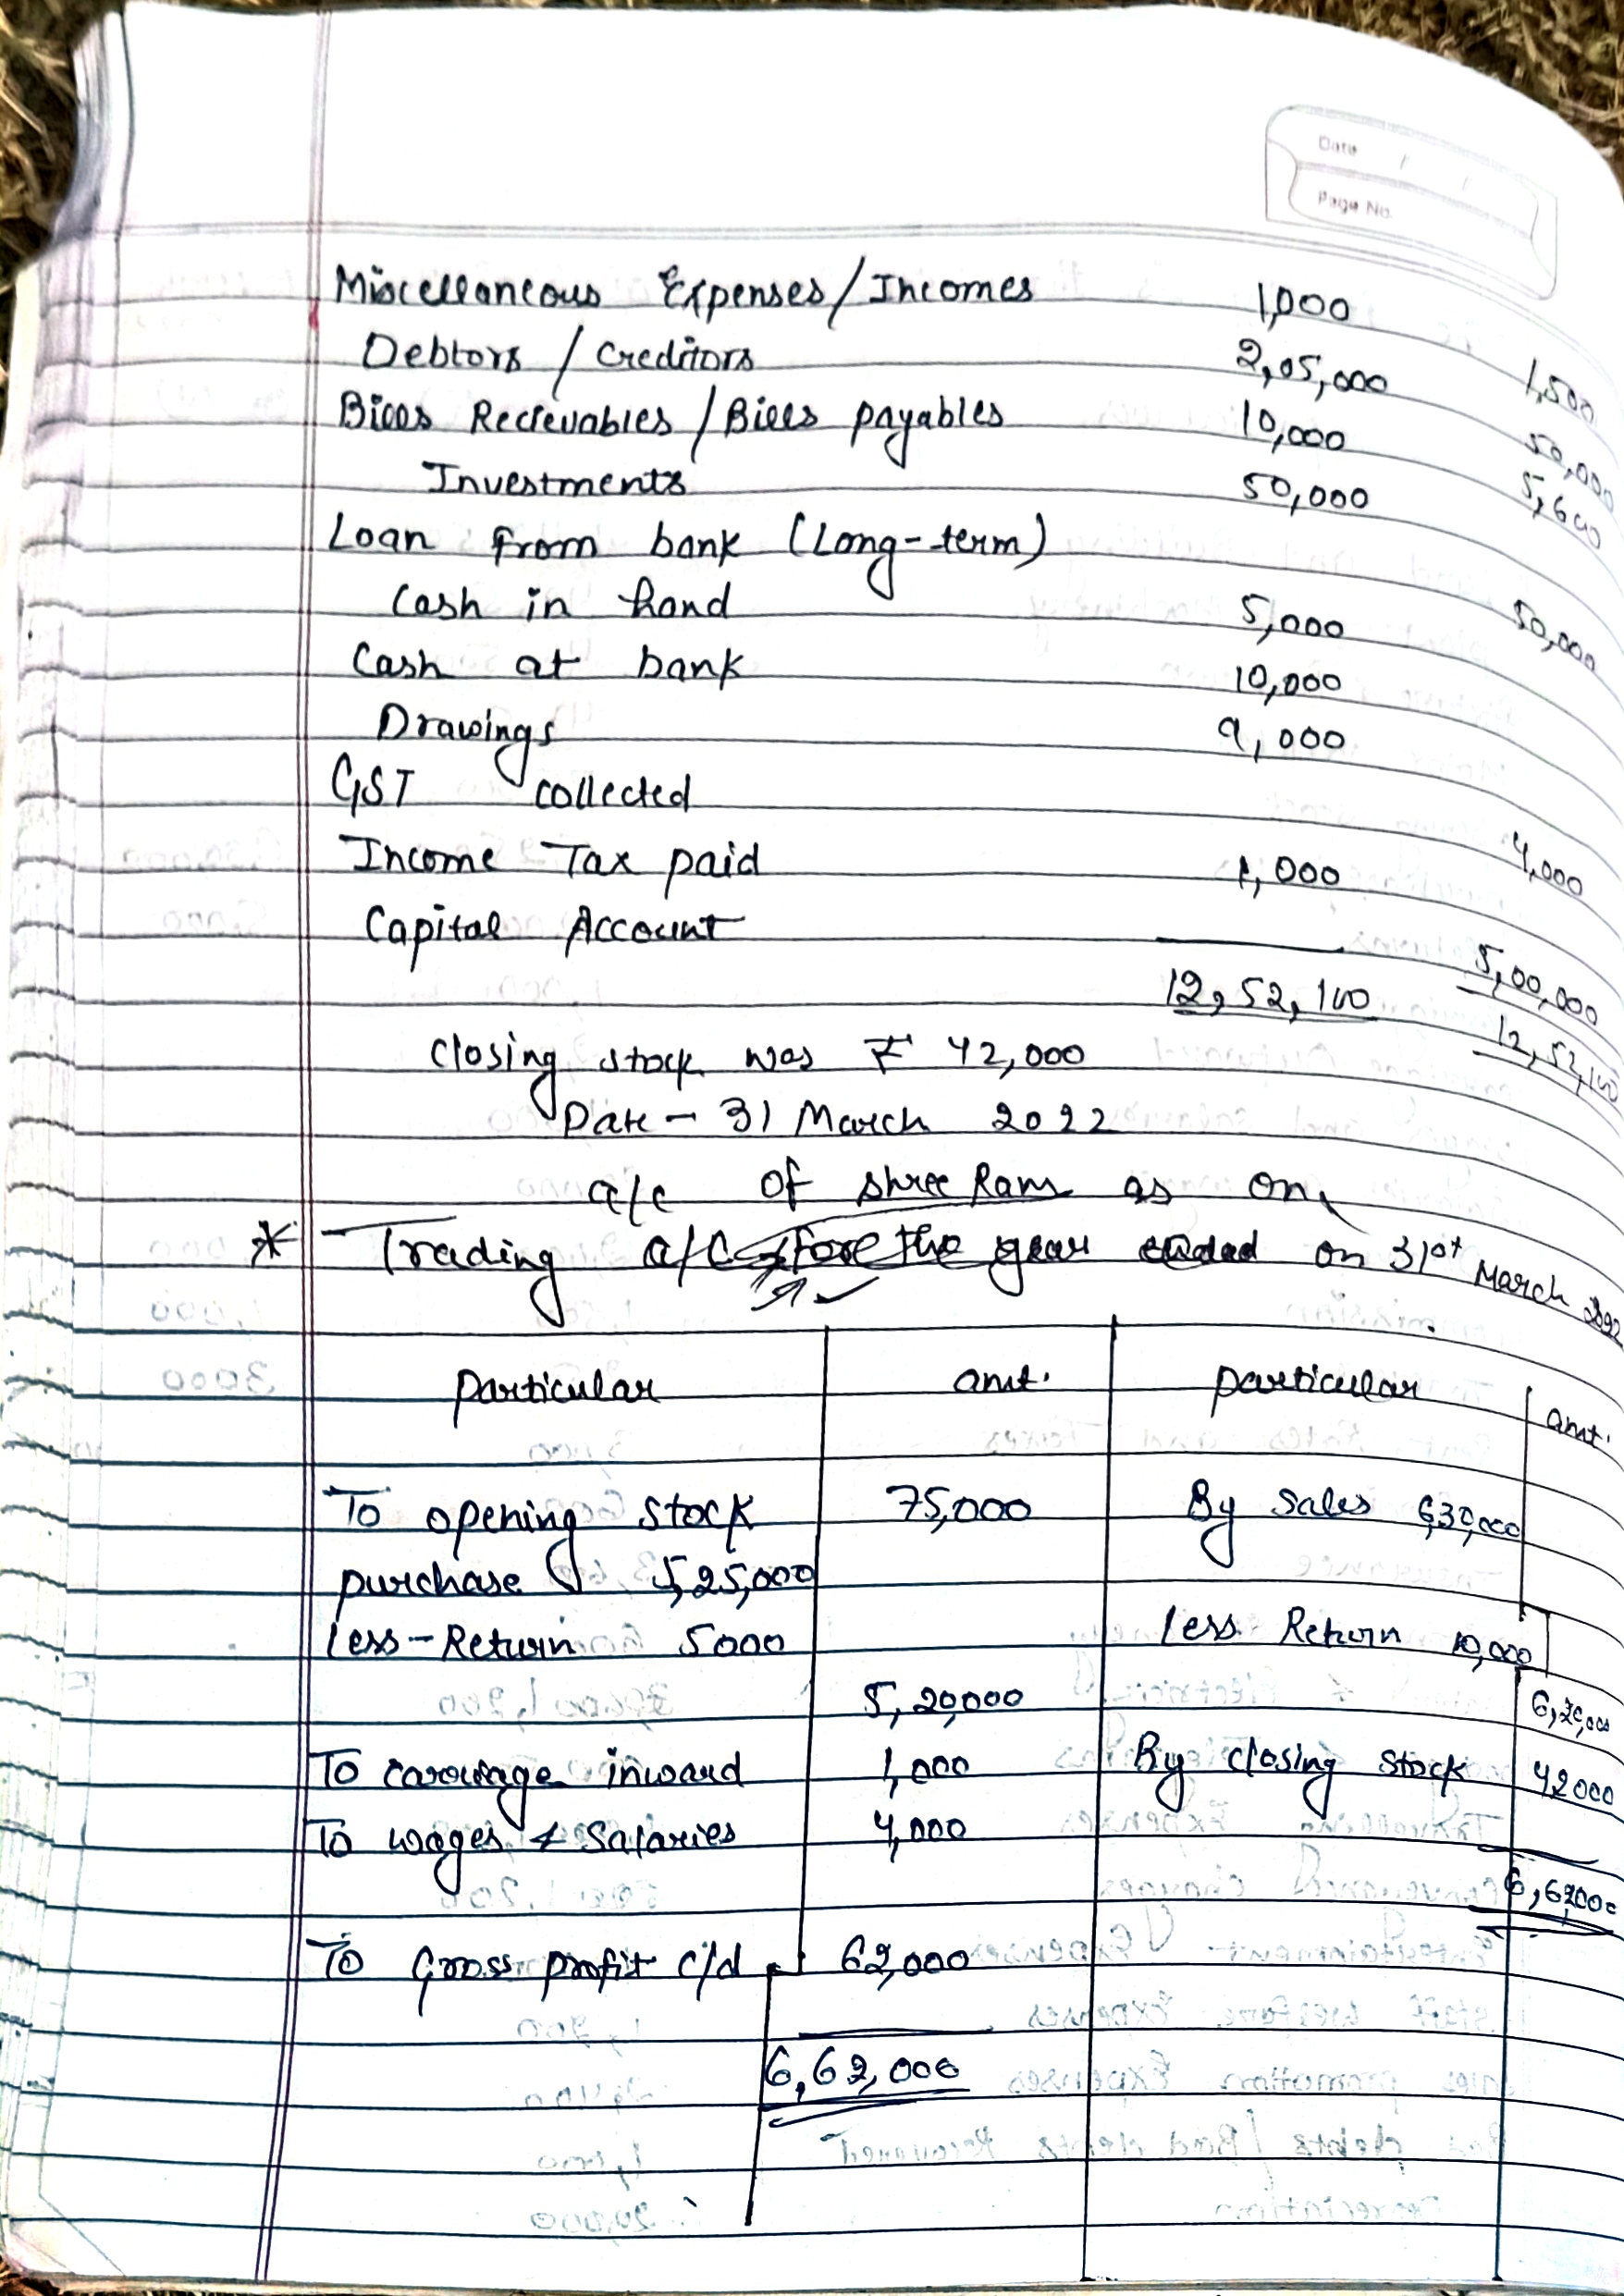 Date / /
Page No.
Miscellaneous Expenses/Incomes 1,000 1,500
Debtors / Creditors 2,05,000 50,000
Bills Recievables / Bills payables 10,000 5,600
Investments 50,000
Loan from bank (Long-term) 50,000
Cash in hand 5,000
Cash at bank 10,000
Drawings 9,000
GST collected 4,000
Income Tax paid 1,000
Capital Account 5,00,000
12,52,100 12,52,100
closing stock was ₹ 42,000
Date - 31 March 2022
a/c of shree Ram as on
* Trading a/c for the year ended on 31st March 2022
particular amt. particular amt.
To opening stock 75,000 By Sales 6,30,000
purchase 5,25,000
less - Return 5000 less Return 10,000
5,20,000 6,20,000
To carriage inward 1,000 By closing stock 42000
To wages & Salaries 4,000
6,62000
To Gross profit c/d 62,000
6,62,000